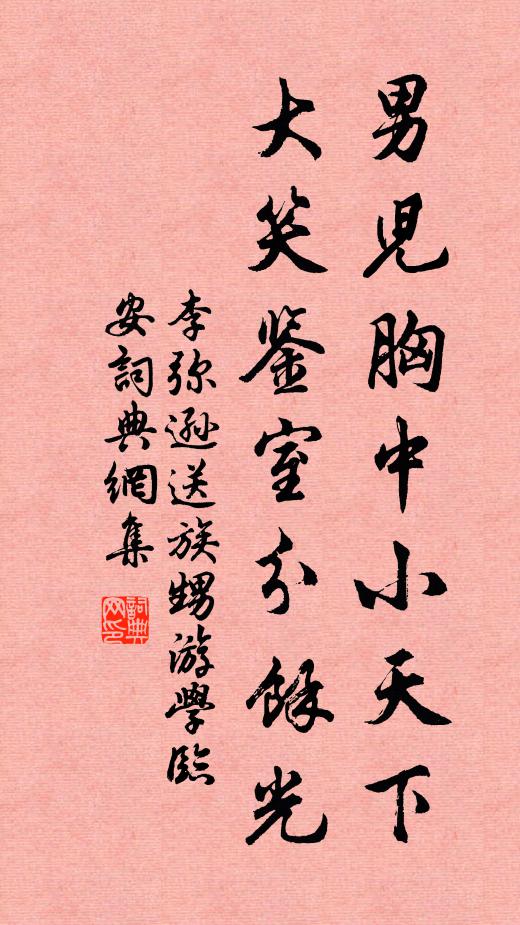 男児胸中小天下
大笑鑒室分餘光
李弥遜送族甥游學臨
安詞典網集
詞典网印